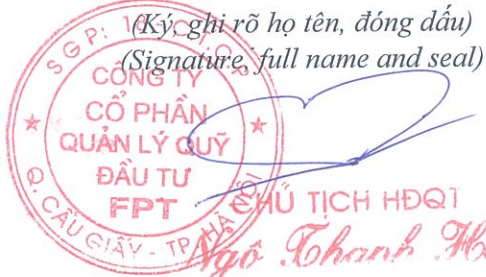 (Ký, ghi rõ họ tên, đóng dấu)
(Signature, full name and seal)
CÔNG TY
CỔ PHẦN
QUẢN LÝ QUỸ
ĐẦU TƯ
FPT
Q. CẦU GIẤY - TP. HÀ NỘI
CHỦ TỊCH HĐQT
Ngô Thanh